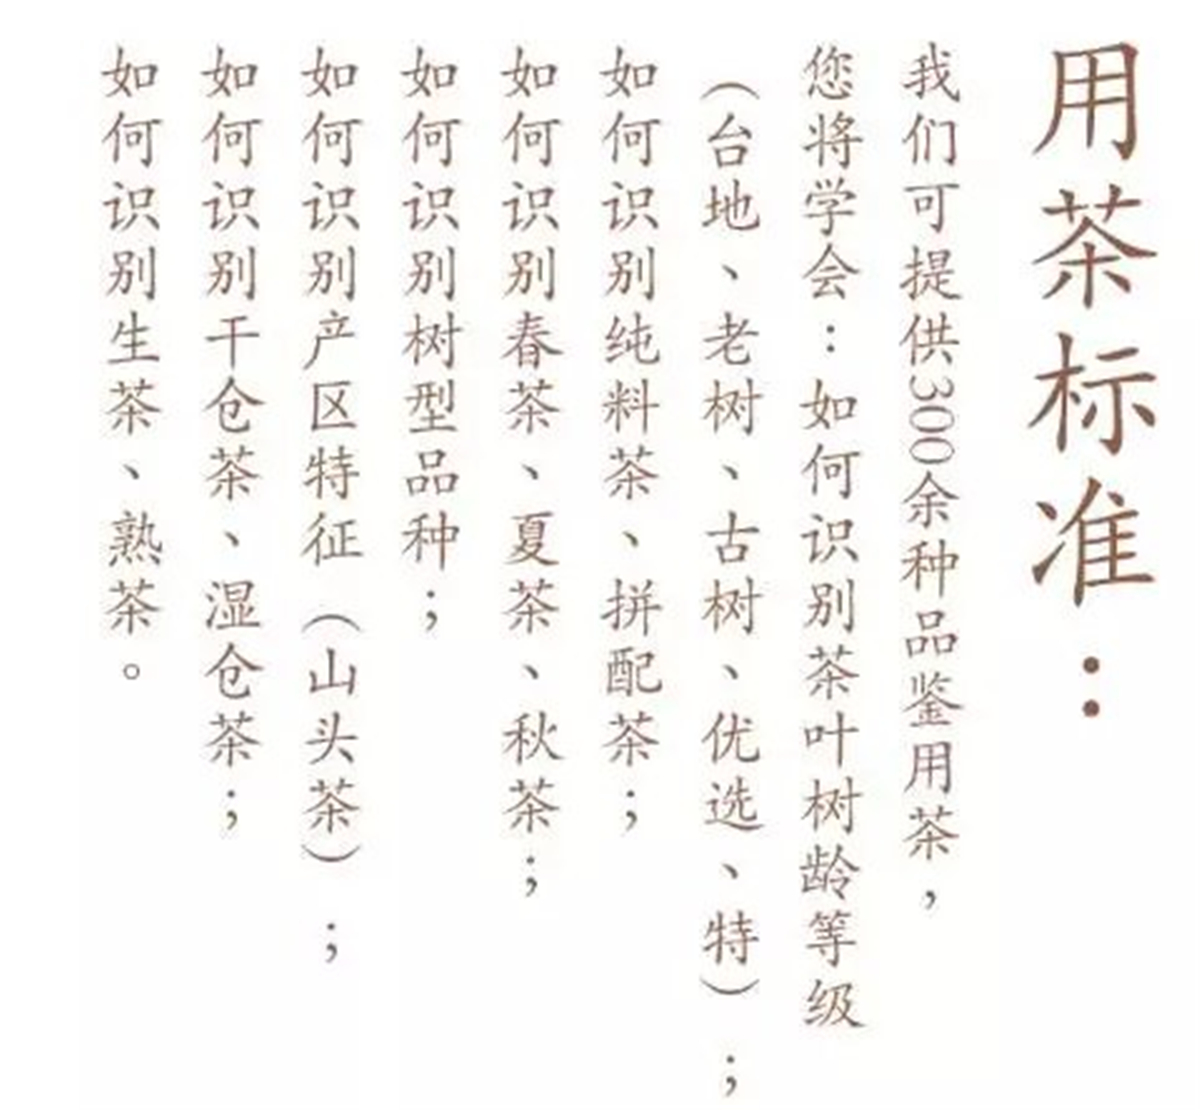 用茶标准：
我们可提供300余种品鉴用茶，
您将学会：如何识别茶叶树龄等级
（台地、老树、古树、优选、特）；
如何识别纯料茶、拼配茶；
如何识别春茶、夏茶、秋茶；
如何识别树型品种；
如何识别产区特征（山头茶）；
如何识别干仓茶、湿仓茶；
如何识别生茶、熟茶。